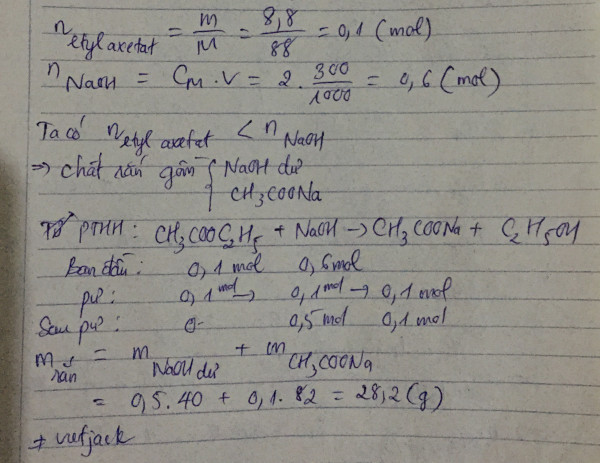 n etyl axetat = m/M = 8,8/88 = 0,1 (mol)
n NaOH = CM . V = 2 . 300/1000 = 0,6 (mol)
Ta có n etyl axetat < n NaOH
=> chất rắn gồm { NaOH dư
CH3COONa
PTHH: CH3COOC2H5 + NaOH → CH3COONa + C2H5OH
Ban đầu: 0,1 mol 0,6 mol
pư: 0,1 mol → 0,1 mol → 0,1 mol
Sau pư: 0 0,5 mol 0,1 mol
m rắn = m NaOH dư + m CH3COONa
= 0,5 . 40 + 0,1 . 82 = 28,2 (g)
+ vietjack